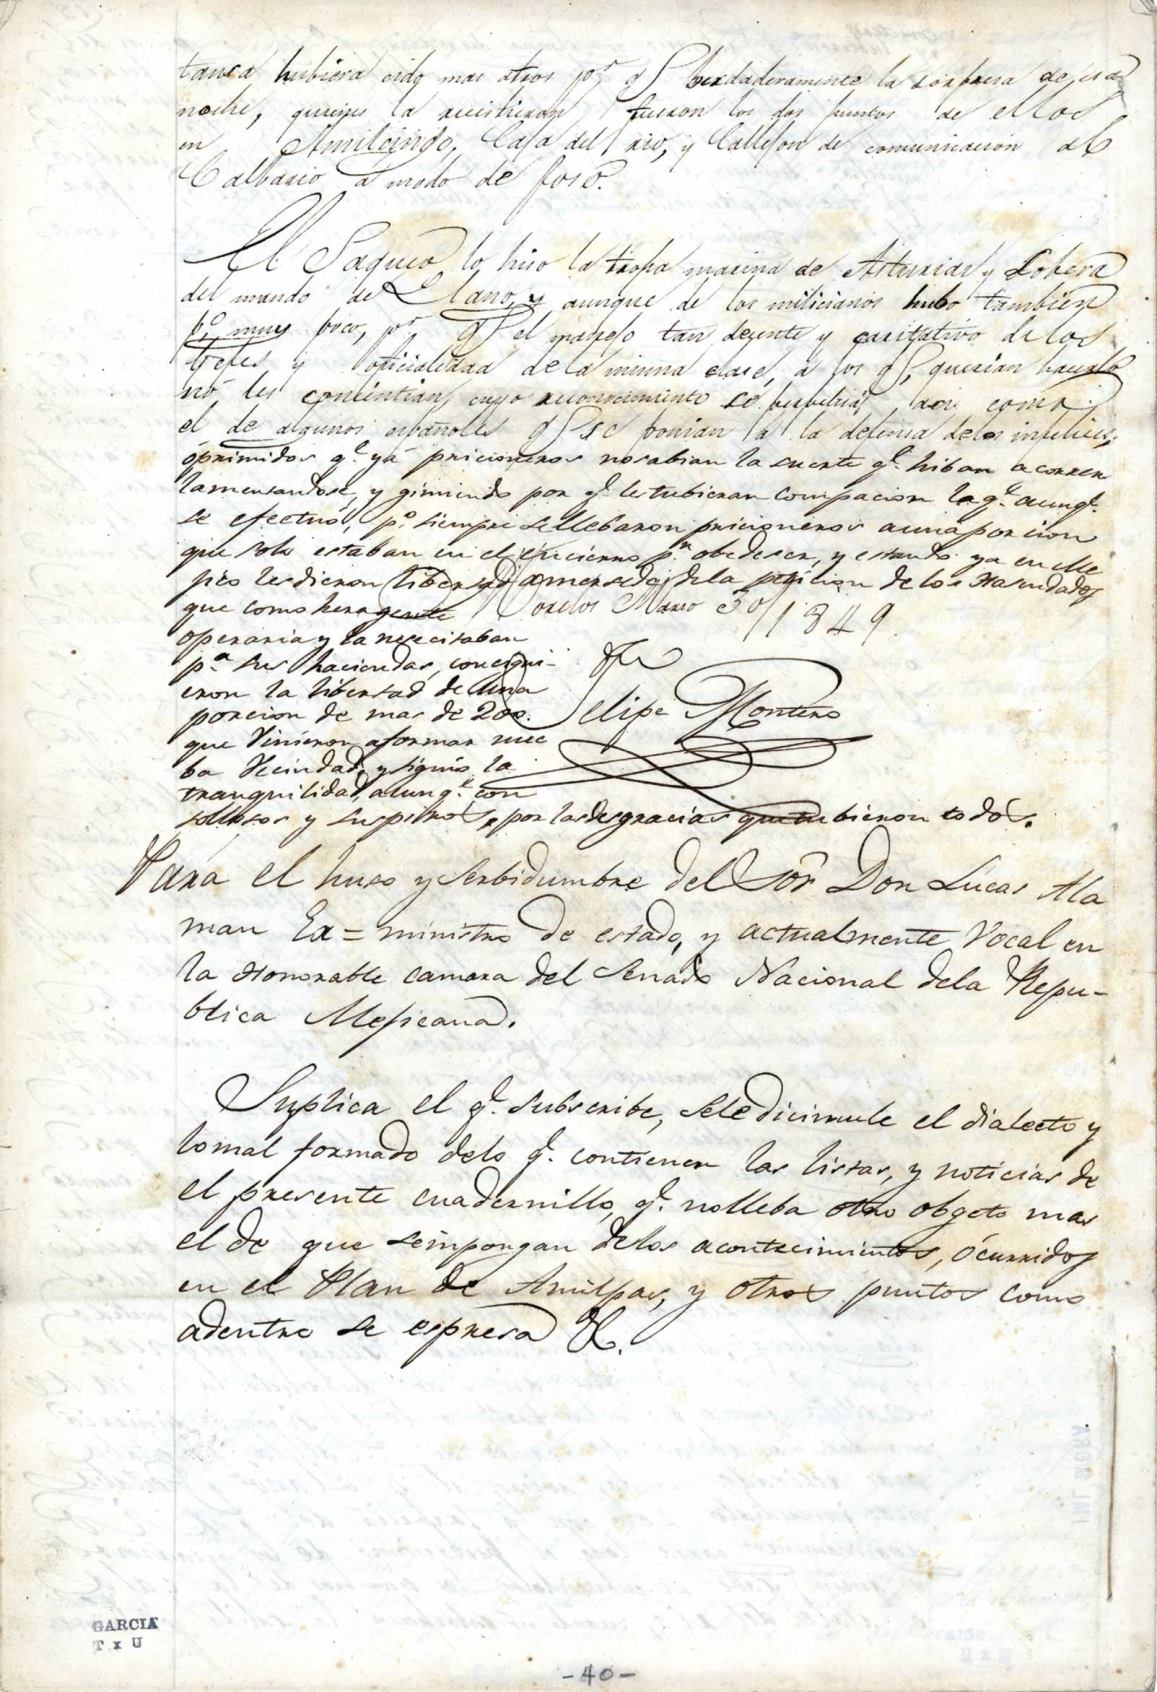 tanca hubiera sido mas atros p.r q.e berdaderamente la sorpresa de esa
noche, quienes la recistieron fueron los dos puntos de ellos
en Amilcingo, Casa del rio, y Callejon de comunicacion al
Calbario a modo de foso.
El Saqueo lo hiso la tropa marina de Asturias y Lobera
del mando de Llano, y aunque de los milicianos hubo tambien
p.o muy poco, p.r q.e el manejo tan desente y caritativo de los
Gefes y oficialidad de la misma clase, a los q.e querian hacerlo
nó les concintian, cuyo reconocimiento se como
el de algunos españoles q.e se ponian á la defensa de los infelices
óprimidos q.e yá pricioneros nosabian la suerte q.e hiban a correr
lamentandose, y gimiendo por q.e les tubieran compacion la q.e aunq.e
se efectuó, p.o siempre sellebaron pricioneros auna porcion
que solo estaban en el encierro p.a obedeser, y estando ya en Me
jico les dieron libertad amersed de la peticion de los Hasendados
que como hera gente Morelos Marzo 30/1849
operaria y la necesitaban
p.a sus haciendas, conciqui-
eron la libertad de una
porcion de mas de 200. Felipe Montero
que Vinieron aformar nue
ba Vecindad, y siguió la
tranquilidad, aunq.e con
sollosos y suspiros, por las desgracias que tubieron todos.
Para el huso y Serbidumbre del Sõr Don Lucas Ala
man Ex=ministro de estado, y actualmente Vocal en
la Honorable camara del Senado Nacional dela Repu-
blica Mejicana.
Suplica el q.e subscribe, sele dicimule el dialecto y
lo mal formado delo q.e contienen las listas, y noticias de
el presente cuadernillo, q.e nolleba otro obgeto mas
el de que seimpongan delos acontecimientos, ócurridos
en el Plan de Amilpas, y otros puntos como
adentro se espresa &.
GARCIA
T x U
-40-